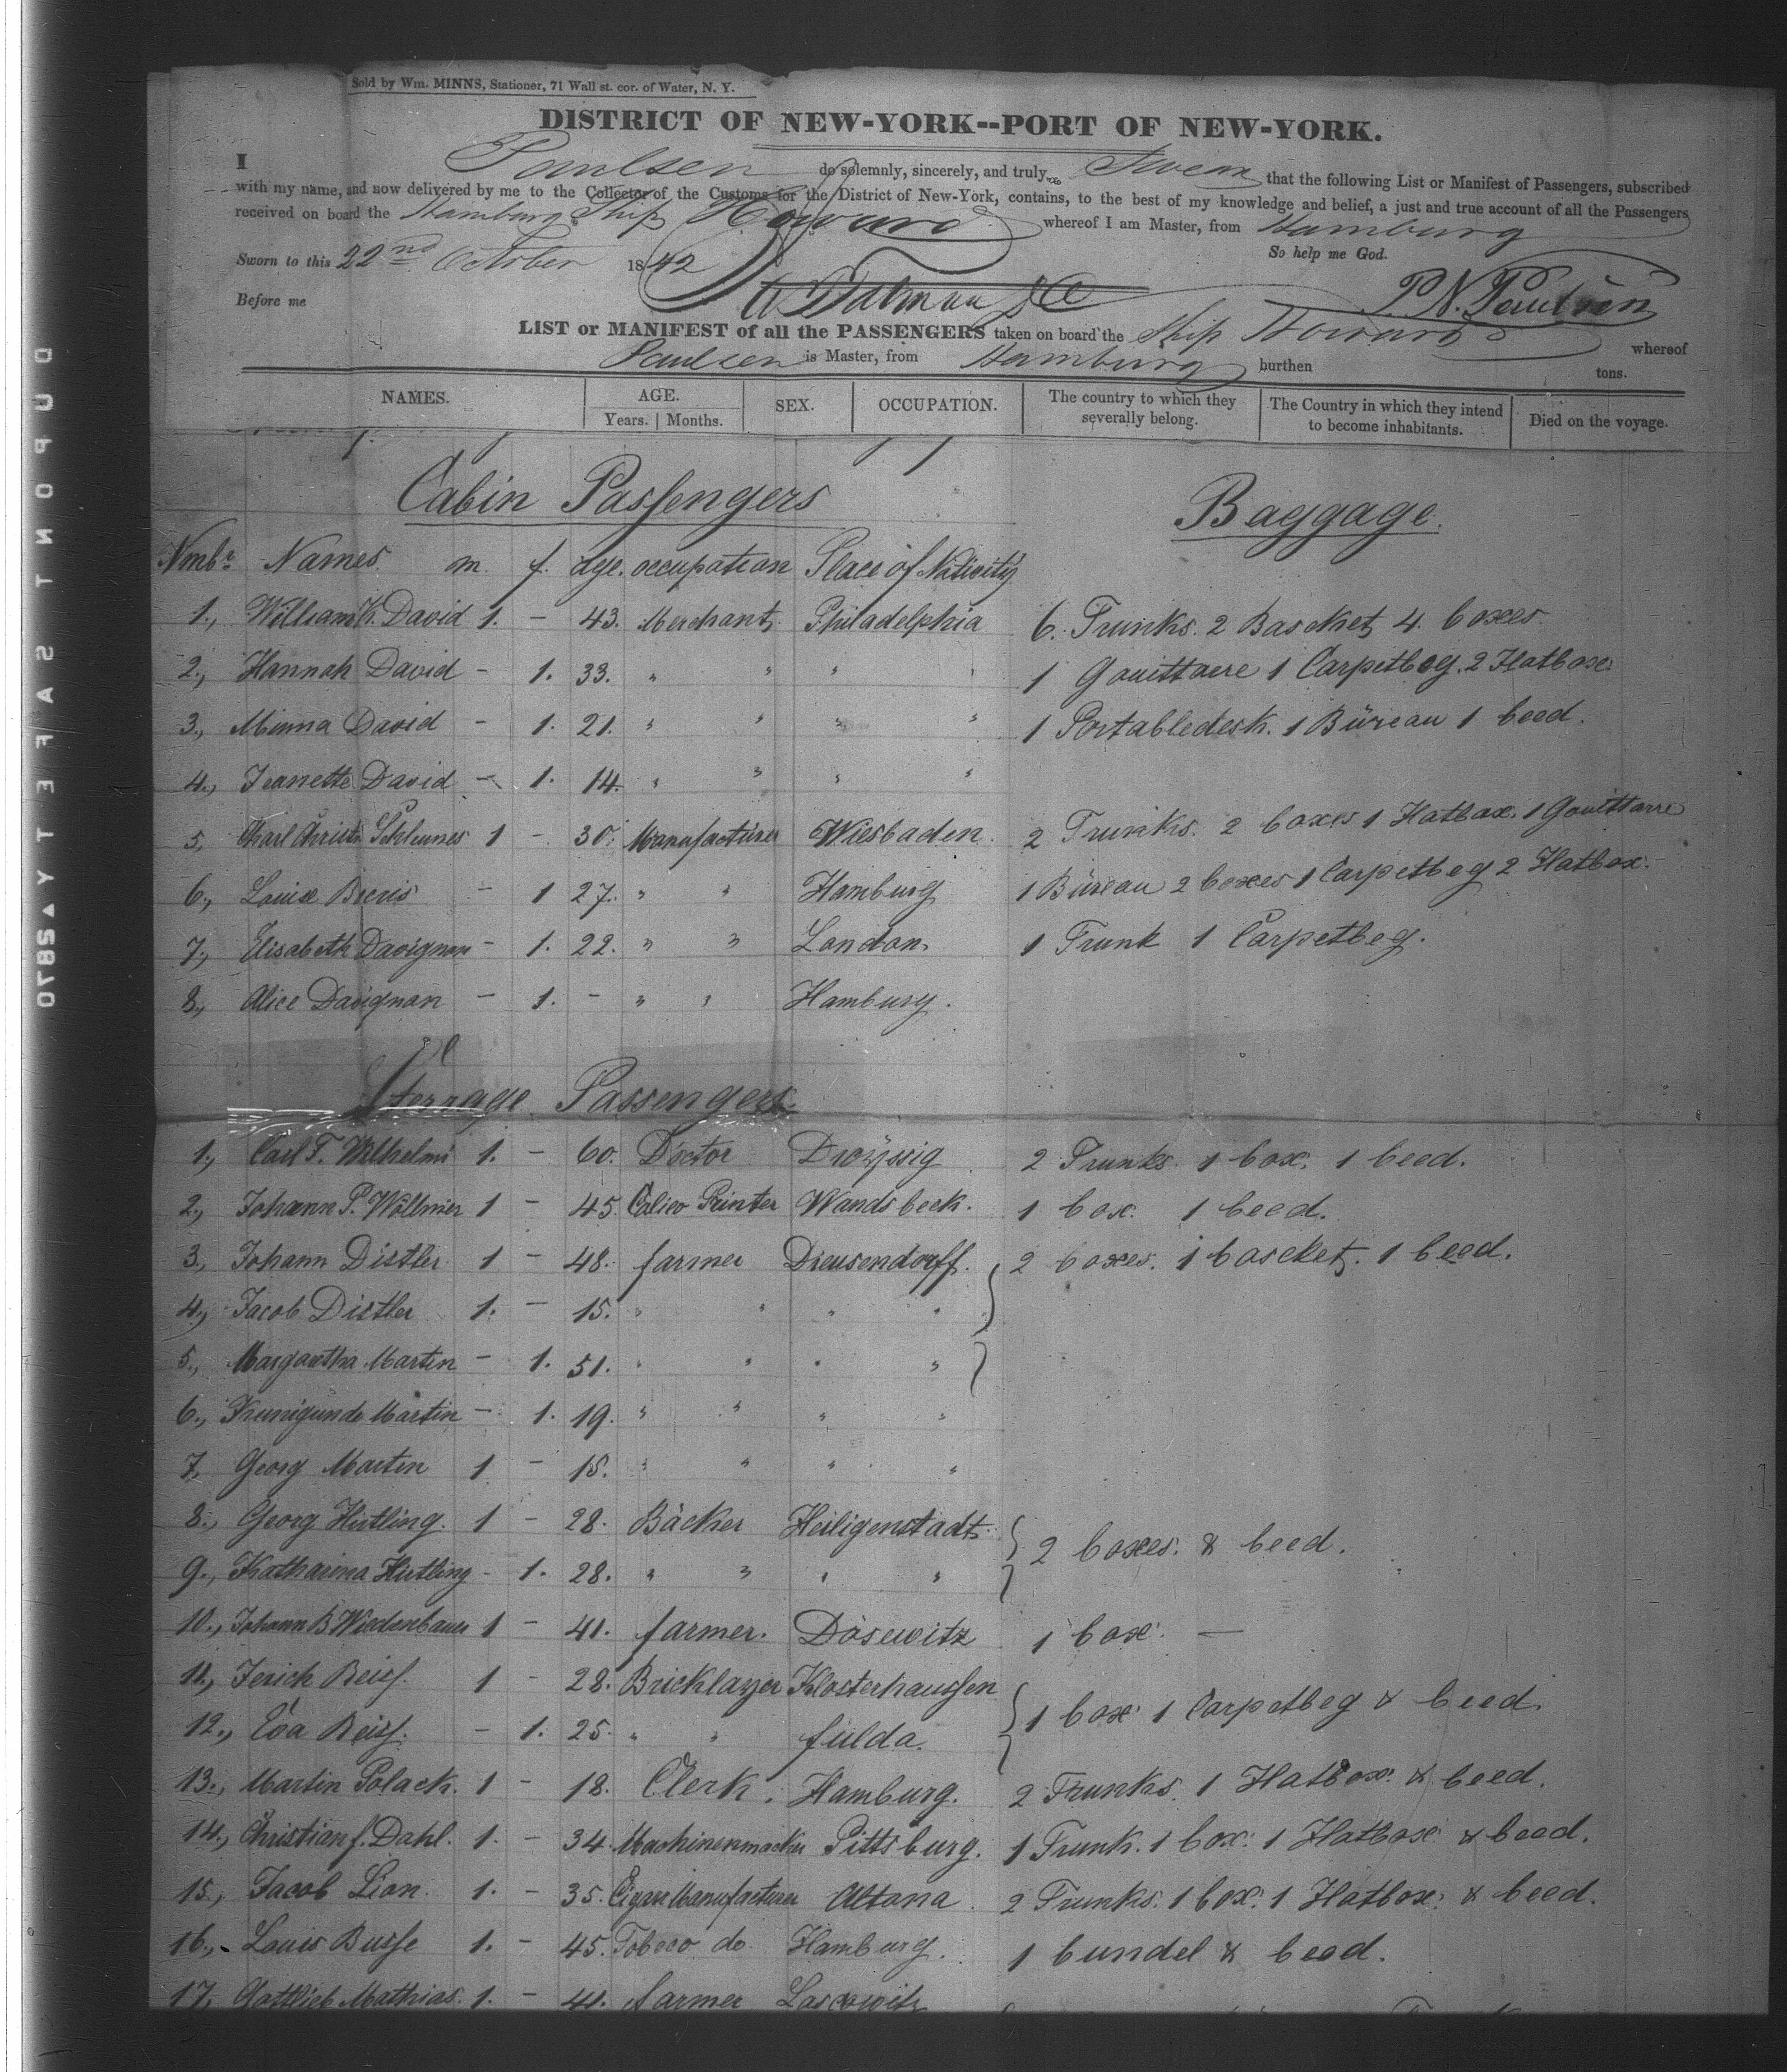 Sold by Wm. MINNS, Stationer, 71 Wall st. cor. of Water, N. Y.
DISTRICT OF NEW-YORK--PORT OF NEW-YORK.
I Paulsen do solemnly, sincerely, and truly Swear that the following List or Manifest of Passengers, subscribed
with my name, and now delivered by me to the Collector of the Customs for the District of New-York, contains, to the best of my knowledge and belief, a just and true account of all the Passengers
received on board the Hamburg Ship Howard whereof I am Master, from Hamburg
Sworn to this 22nd October 1842 So help me God.
Before me P. N. Paulsen
LIST or MANIFEST of all the PASSENGERS taken on board the Ship Howard whereof
Paulsen is Master, from Hamburg burthen tons.
NAMES. AGE. Years. | Months. SEX. OCCUPATION. The country to which they severally belong. The Country in which they intend to become inhabitants. Died on the voyage.
Cabin Passengers Baggage.
Nmbr. Names. m. f. age. occupation Place of Nativity
1., William K. David 1. – 43. Merchant Philadelphia 6. Trunks. 2 Bascket, 4. boxes.
2., Hannah David – 1. 33. " " " " 1 Gouittarre 1 Carpetbeg. 2 Hatboxe
3., Minna David – 1. 21. " " " " 1 Portabledesk. 1 Büreau 1 beed.
4., Jeanette David – 1. 14. " " " "
5, Charl Christn 1 – 30. Manufacturer Wiesbaden. 2 Trunks. 2 boxes 1 Hatbox. 1 Gouittarre
6., Louise – 1 27. " " Hamburg 1 Büreau 2 boxes 1 Carpetbeg 2 Hatbox.
7., Elisabeth Davignon – 1. 22. " " London. 1 Trunk 1 Carpetbeg.
8., Alice Davignon – 1. – " " Hamburg.
Sterrage Passengers.
1., Carl F. Wilhelmi 1. – 60. Doctor 2 Trunks. 1 box. 1 beed.
2., Johann P. Wöllmer 1 – 45. Calico Printer Wandsbeck. 1 box. 1 beed.
3., Johann Distler 1 – 48. farmer Dreusendorff. 2 boxes. 1 bascket. 1 beed.
4., Jacob Distler 1. – 15. " " " "
5., Margaretha Martin – 1. 51. " " " "
6., Kunigunde Martin – 1. 19. " " " "
7, Georg Martin 1 – 15. " " " "
8., Georg Hütling. 1 – 28. Bäcker Heiligenstadt. 2 boxes. & beed.
9., Katharina Hütling – 1. 28. " " " "
10., Johann B Wiedenbauer 1 – 41. farmer. Dösewitz 1 box. —
11., Jerich Reiss. 1 – 28. Bricklayer Klosterhaussen 1 box 1 Carpetbeg & beed.
12., Eva Reiss. – 1. 25. " " fulda.
13., Martin Polack. 1 – 18. Clerk. Hamburg. 2 Trunks. 1 Hatbox. & beed.
14., Christian f. Dahl. 1. – 34. Maschinenmacker Pittsburg. 1 Trunk. 1 box. 1 Hatboxe & beed.
15., Jacob Lion. 1. – 35. Cigar Manufacturer Altona 2 Trunks. 1 box. 1 Hatbox. & beed.
16., Louis Busse 1. – 45. Tobeco do. Hamburg. 1 bundel & beed.
17, Gottlieb Mathias. 1. – 41. farmer